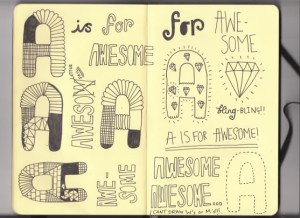 A is for
AWESOME
A
AWESOME
A
A
A
AWE-
SOME
for AWE-
SOME
A
bling-BLING!!
A IS FOR AWESOME!
AWESOME
AWESOME
A
I CAN'T DRAW W's or M's!!